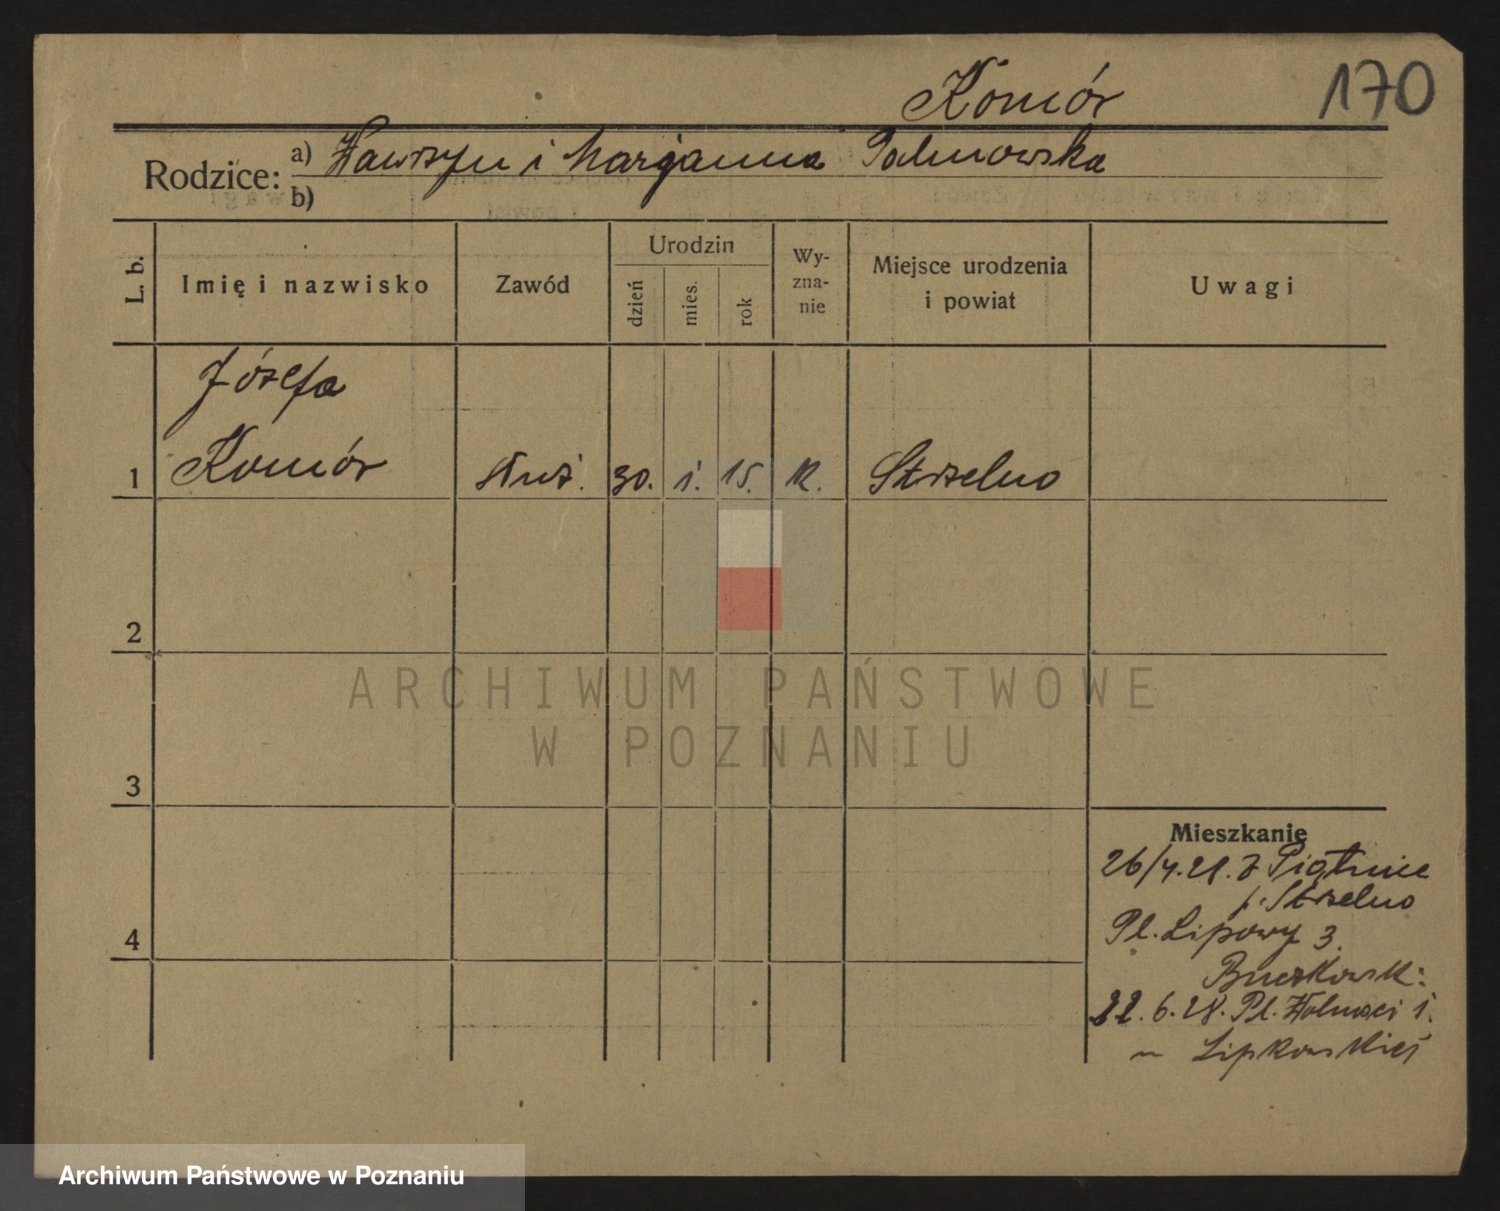 Komór
170
Rodzice: a) Wawrzyn i Marjanna Palmowska
b)
L. b.
Imię i nazwisko
Zawód
Urodzin
dzień
mies.
rok
Wy-
zna-
nie
Miejsce urodzenia
i powiat
Uwagi
Józefa
1 Komór służ. 30. 1. 15. k. Strzelno
2
3
4
Mieszkanie
26/4.28. z
p. Strzelno
Pl. Lipowy 3.
22.6.28. Pl. Wolności 1.
ARCHIWUM PAŃSTWOWE
W POZNANIU
Archiwum Państwowe w Poznaniu